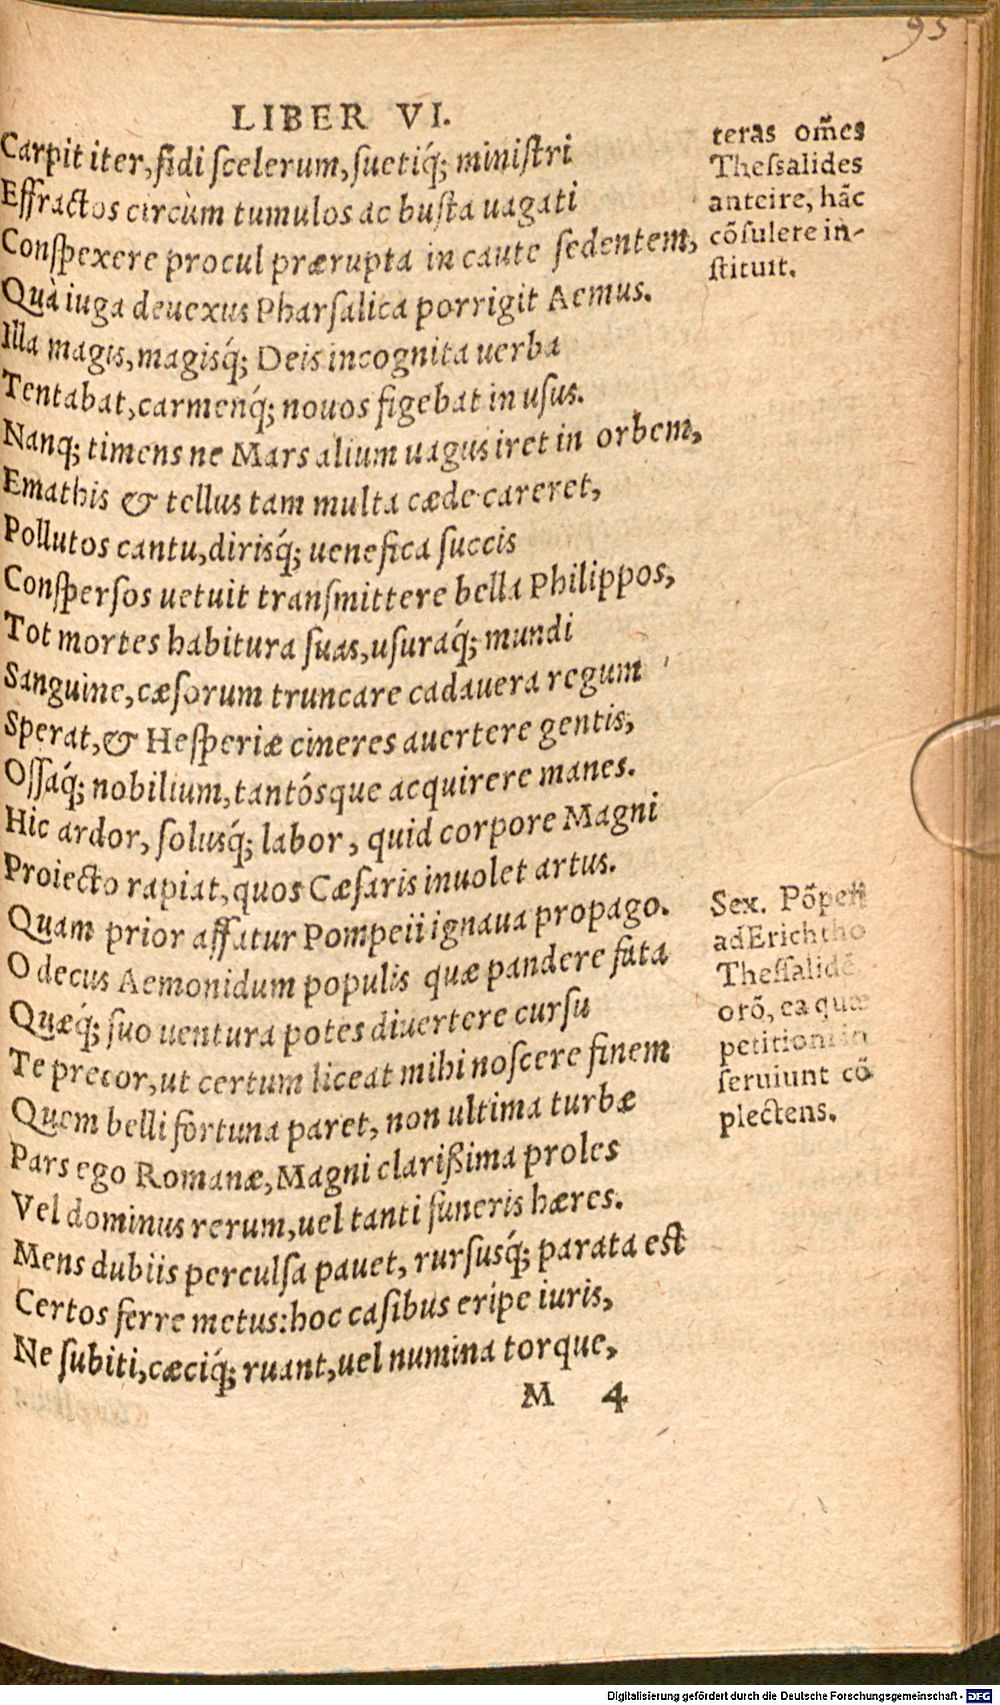 95
LIBER VI.
Carpit iter, fidi ſcelerum, ſuetiq́; miniſtri
Effractos circùm tumulos ac buſta uagati
Conſpexere procul prærupta in caute ſedentem,
Quà iuga deuexus Pharſalica porrigit Aemus.
Illa magis, magisq́; Deis incognita uerba
Tentabat, carmenq́; nouos figebat in uſus.
Nanq; timens ne Mars alium uagus iret in orbem,
Emathis & tellus tam multa cæde careret,
Pollutos cantu, dirisq́; uenefica ſuccis
Conſperſos uetuit tranſmittere bella Philippos,
Tot mortes habitura ſuas, uſuraq́; mundi
Sanguine, cæſorum truncare cadauera regum
Sperat, & Heſperiæ cineres auertere gentis,
Oſſaq́; nobilium, tantósque acquirere manes.
Hic ardor, ſolusq́; labor, quid corpore Magni
Proiecto rapiat, quos Cæſaris inuolet artus.
Quam prior affatur Pompeii ignaua propago.
O decus Aemonidum populis quæ pandere fata
Quæq́; ſuo uentura potes diuertere curſu
Te precor, ut certum liceat mihi noſcere finem
Quem belli fortuna paret, non ultima turbæ
Pars ego Romanæ, Magni clarißima proles
Vel dominus rerum, uel tanti funeris hæres.
Mens dubiis perculſa pauet, rurſusq́; parata eſt
Certos ferre metus: hoc caſibus eripe iuris,
Ne ſubiti, cæciq́; ruant, uel numina torque,
M 4
teras om̃es
Theſſalides
anteire, hāc
cōſulere in-
ſtituit.
Sex. Pōpeii
ad Erichtho
Theſſalidē
orō, ea quæ
petitioni in
ſeruiunt cō
plectens.
Digitalisierung gefördert durch die Deutsche Forschungsgemeinschaft - DFG